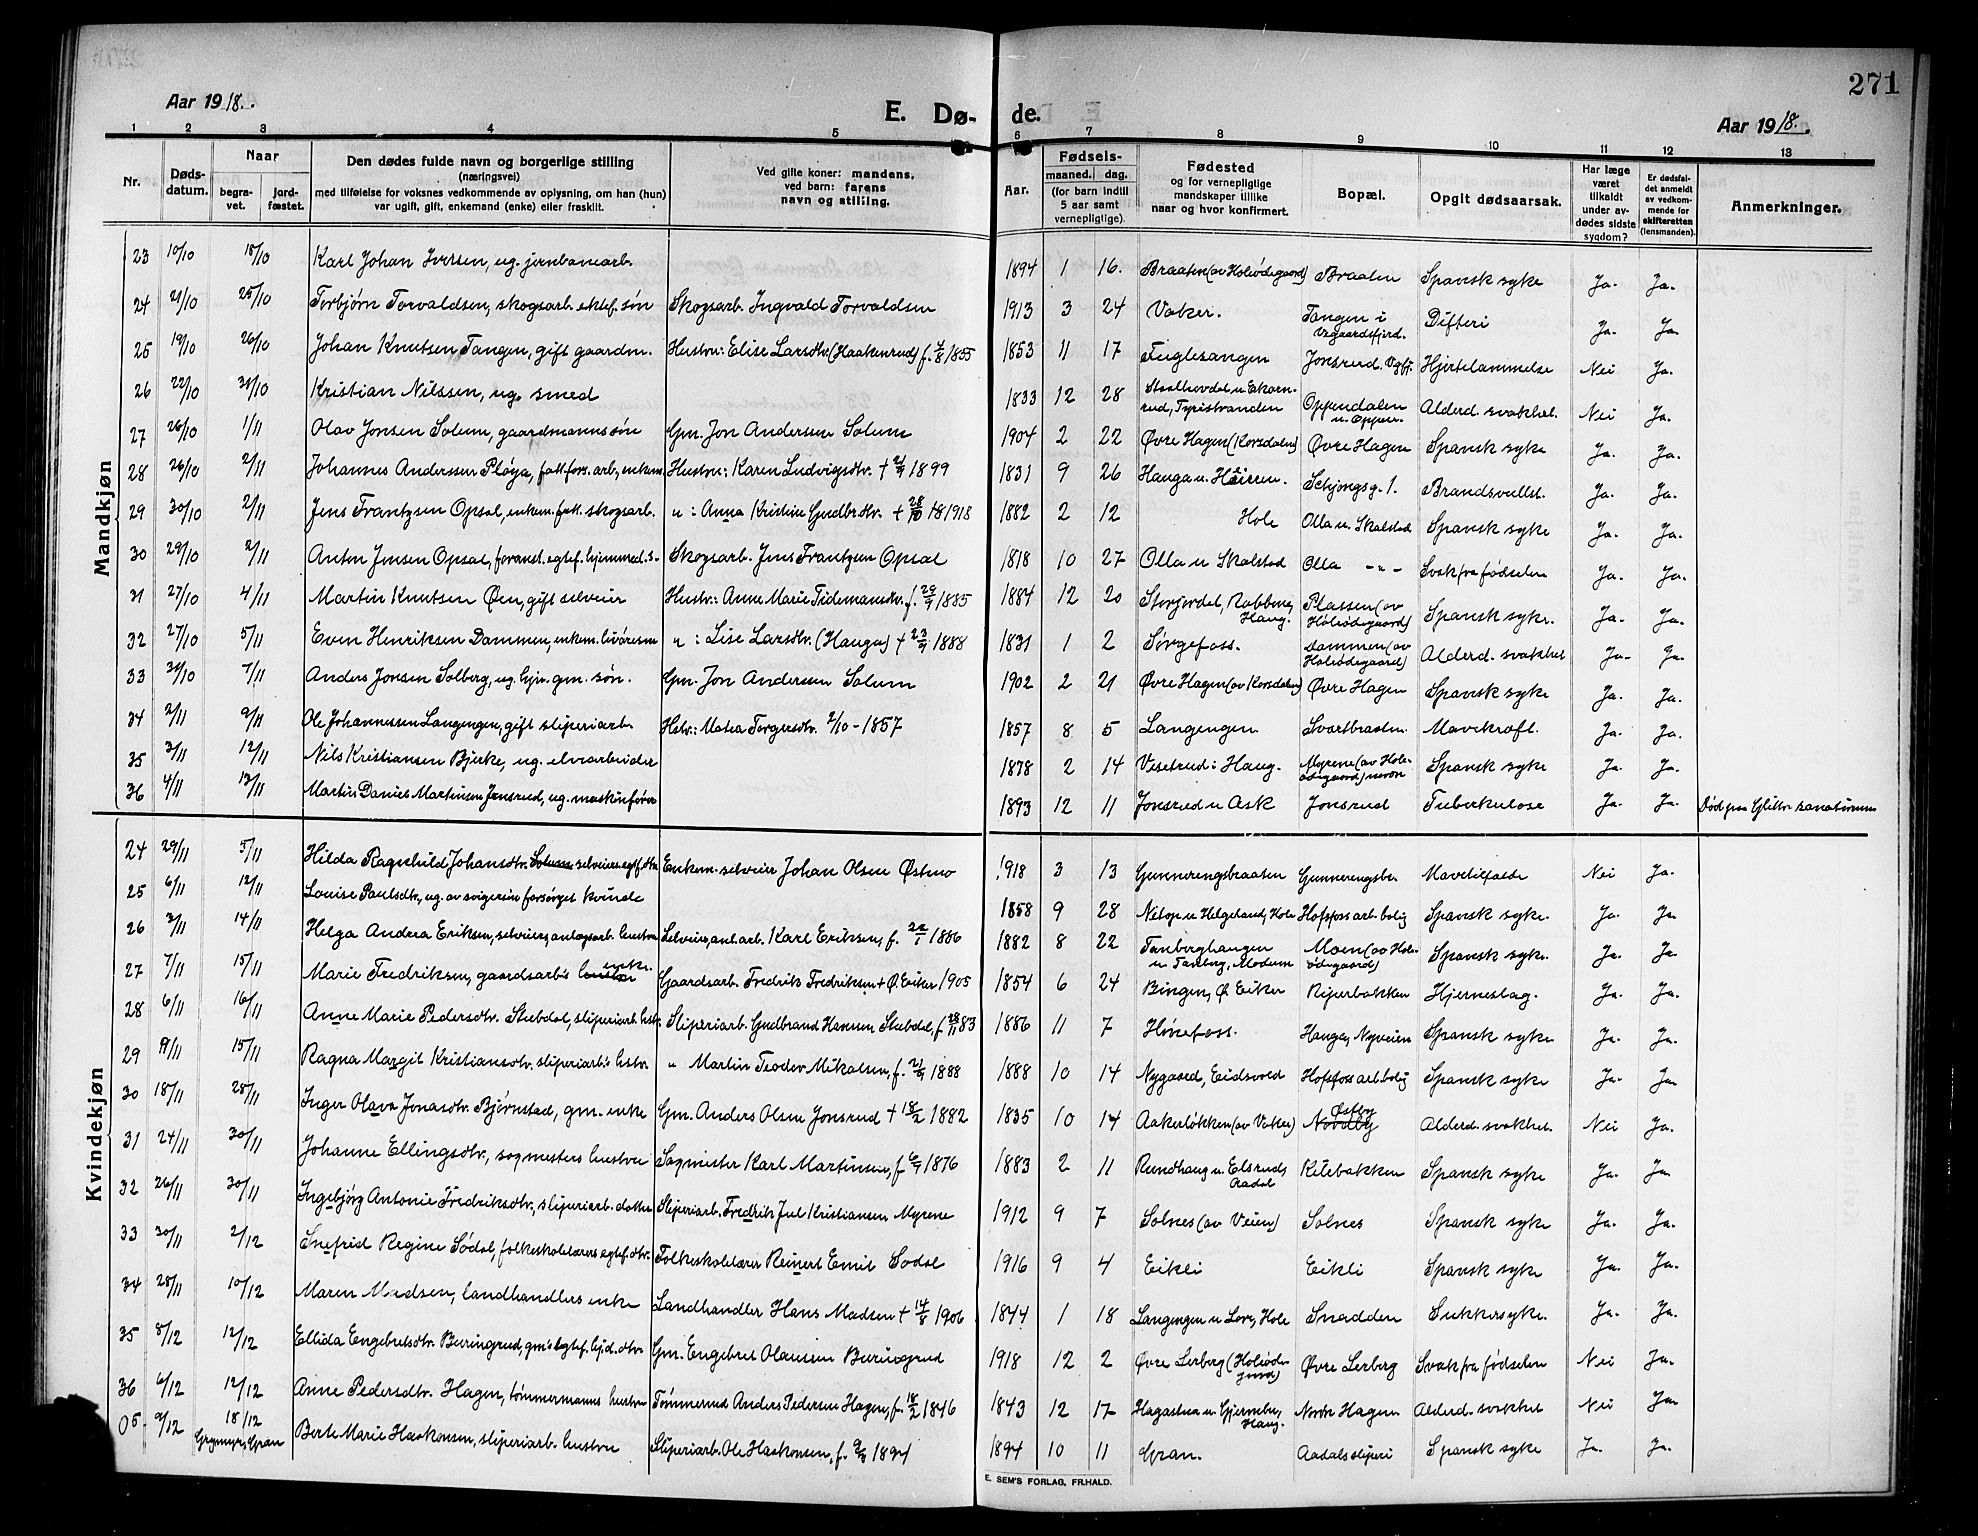 271
Aar 1918.
E. Dø- de.
Aar 1918.
1 2 3 4 5 6 7 8 9 10 11 12 13
Nr. Døds-datum. Naar begra-vet. jord-fæstet. Den dødes fulde navn og borgerlige stilling (næringsvei) med tilføielse for voksnes vedkommende av oplysning, om han (hun) var ugift, gift, enkemand (enke) eller fraskilt. Ved gifte koner: mandens, ved barn: farens navn og stilling. Aar. Fødsels-maaned. dag. (for barn indtil 5 aar samt vernepligtige). Fødested og for vernepligtige mandskaper tillike naar og hvor konfirmert. Bopæl. Opgit dødsaarsak. Har læge været tilkaldt under av-dødes sidste sygdom? Er dødsfal-det anmeldt av vedkom-mende for skifteretten (lensmanden). Anmerkninger.
Mandkjøn
23 19/10 18/10 Karl Johan Iversen, ug. jernbanearb. 1894 1 16. Braaten (av Holeødegaard) Braaten Spansk syke Ja. Ja.
24 21/10 25/10 Torbjørn Torvaldsen, skogsarb. ektef. søn Skogsarb. Ingvald Torvaldsen 1913 3 24 Vaker. Tangen i Difteri Ja. Ja.
25 19/10 26/10 Johan Knutsen Tangen, gift gaardm. Hustru: Elise Larsdtr. (Haakenrud) f. 4/8 1855 1853 11 17 Fuglesangen Jonsrud. Hjertelammelse Nei Ja.
26 22/10 31/10 Kristian Nilssen, ug. smed 1833 12 28 rud, Tyristranden Oppendalen Alderd. svakhet. Nei Ja.
27 26/10 1/11 Olav Jonsen Solum, gaardmanns søn Gm. Jon Andersen Solum 1904 2 22 Øvre Hagen (Korsdalen) Øvre Hagen Spansk syke Ja. Ja.
28 26/10 2/11 Johannes Anderssen Pløya, fatt. fors. arb., enkem. Hustru: Karen Ludvigsdtr. + 2/9 1899 1831 9 26 Hauga u. Schjongsg. 1. Brandsvulst. Ja. Ja.
29 30/10 2/11 Jens Frantzsen Opsal, enkem. fatt. skogsarb. " : Anna Kristine Gudbr.dtr. + 28/10 1918 1882 2 12 Hole Olla u. Skalstad Spansk syke Ja. Ja.
30 29/10 2/11 Anton Jensen Opsal, Skogsarb. Jens Frantzsen Opsal 1818 10 27 Olla u Skalstad Olla -"- Svak fra fødselen Ja. Ja.
31 27/10 4/11 Martin Knutsen Øen, gift selveier Hustru: Anne Marie Tidemansdtr. f. 24/9 1885 1884 12 20 Storjordet, Haug. Plassen (av Holeødegaard) Spansk syke. Ja. Ja.
32 27/10 5/11 Even Henriksen Dammen, enkem. livøresm " : Lise Larsdtr. (Hauga) + 23/9 1888 1831 1 2 Sørgefoss. Dammen (av Holeødegaard) Alderd. svakhet Ja. Ja.
33 31/10 7/11 Anders Jonsen Solberg, ug. hjv. gm. søn. Gm. Jon Andersen Solum 1902 2 21 Øvre Hagen (av Korsdalen) Øvre Hagen Spansk syke Ja. Ja.
34 2/11 9/11 Ole Johannessen Langengen, gift sliperiarb. Hstr.: Matea Torgersdtr. 2/10 - 1857 1857 8 5 Langengen. Svartbraaten. Mavekræft. Ja. Ja.
35 3/11 12/11 Nils Kristiansen Bjerke, ug. elvearbeider 1878 2 14 Veseterud i Haug. Myrene (av Hole-ødegaard) Spansk syke Ja. Ja.
36 4/11 13/11 Martin Danies Martinsen Jonsrud, ug. maskinfører 1893 12 11 Jonsrud u Ask Jonsrud Tuberkulose Ja. Ja. Død paa Glitre sanatorium
Kvindekjøn
24 29/11 5/11 Hilda Ragnhild Johansdtr. Solum selveiers egtf. dtr. Enkem. selveier Johan Olsen Østmo 1918 3 13 Gunnerengsbraaten Gunnerengsbr. Nei Ja.
25 6/11 12/11 Louise Paulsdtr., ug. av svigersøn forsørget kvinde 1858 9 28 u Helgeland, Hole Hofsfoss arb. bolig Spansk syke. Ja. Ja.
26 3/11 14/11 Helga Andrea Eriksen, selveiers, anlægsarb. hustru Selveier, anl. arb. Karl Eriksen, f. 22/1 1886 1882 8 22 Tanberghaugen u Tanberg, Modum Moen (av Hole-ødegaard) Spansk syke. Ja. Ja.
27 7/11 15/11 Marie Fredriksen, gaardsarb's hustru enke. Gaardsarb. Fredrik Fredriksen + Ø. Eiker 1905 1854 6 24 Bingen, Ø. Eiker Riperbakken Hjerneslag. Ja. Ja.
28 6/11 16/11 Anne Marie Pedersdtr. Stubdal, sliperiarb. hustr. Sliperiarb. Gudbrand Hansen Stubdal, f 28/11 83 1886 11 7 Hønefoss. Hauga, Nyveien Spansk syke Ja. Ja.
29 9/11 15/11 Ragna Margit Kristiansdtr. sliperiarb's hustru. " Martin Teodor Mikalsen, f. 21/9 1888 1888 10 14 Nygaard, Eidsvold Hofsfoss arb. bolig Spansk syke Ja. Ja.
30 18/11 25/11 Inger Olava Jonasdtr. Bjørnstad, gm. enke Gm. Anders Olsen Jonsrud + 18/2 1882 1835 10 14 Aakerløkken (av Vaker) Nordby Østby Alderd. svakhet Nei Ja.
31 24/11 30/11 Johanne Ellingsdtr., sagmesters hustru Sagmester Karl Martinsen, f 6/9 1876 1883 2 11 Rundhaug u. Elsrud, Aadal Kilebakken Spansk syke Ja. Ja.
32 26/11 30/11 Ingebjørg Antonie Fredriksdtr., sliperiarb. datter Sliperiarb. Fredrik Jul Kristiansen Myrene 1912 9 7 Solnes (av Veien) Solnes Spansk syke Ja. Ja.
33 30/11 2/12 Snefrid Regine Sødal, folkeskolelærers egtef. dtr. Folkeskolelærer Reinert Emil Sødal 1916 9 4 Eikli Eikli Spansk syke Ja. Ja.
34 28/11 10/12 Maren Madsen, landhandlers enke Landhandler Hans Madsen + 14/8 1906 1844 1 18 Langengen u Lore, Hole Snadden Sukkersyke. Ja. Ja.
35 8/12 12/12 Ellida Engebretsdtr. Buringrud, gm's egtef. hjd. dtr. Gm. Engebret Olausen Buringrud 1918 12 2 Øvre Lerberg (Holeøde-gaard) Øvre Lerberg Svak fra fødselen Nei Ja.
36 6/12 12/12 Anne Pedersdtr. Hagen, tømmermanns hustru Tømmerm Anders Pedersen Hagen, f. 18/2 1846 1843 12 17 Hagastua u. Gjermebu, Haug. Nordre Hagen Alderd. svakhet Nei Ja.
05- 9/12 18/12 Grymyr, Gran Berte Marie Haakonsen, sliperiarb. hustru Sliperiarb. Ole Haakonsen, f. 9/9 1894 1894 10 11 Gran. Aadals sliperi Spansk syke Ja. Ja.
E. SEM'S FORLAG, FR.HALD.